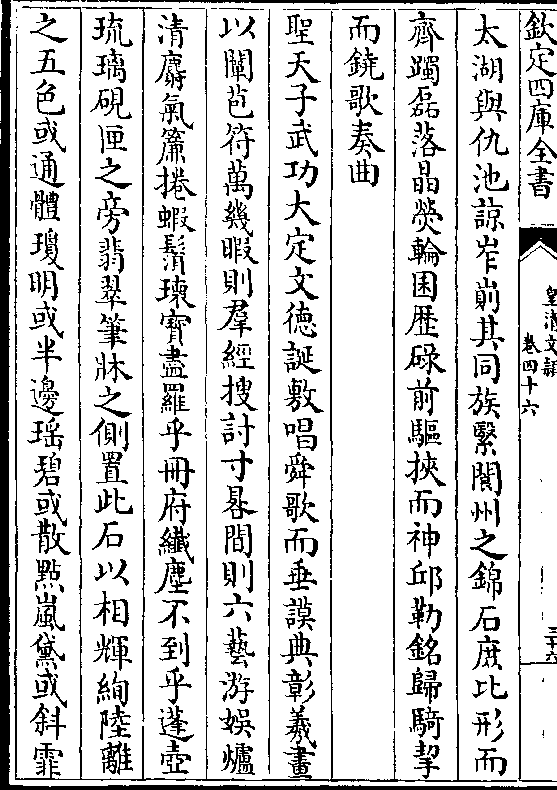 欽定四庫全書
皇清文穎
卷四十六
三十六
太湖與仇池諒岝崱其同族繄閬州之錦石庶比形而
齊躅磊落晶熒輪囷歴碌前驅挾而神邱勒銘歸騎挈
而鐃歌奏曲
聖天子武功大定文德誕敷唱舜歌而垂謨典彰羲畫
以闡苞符萬幾暇則羣經搜討寸晷間則六藝游娛爐
清麝氣簾捲蝦鬚瓌寳盡羅乎冊府纖塵不到乎蓬壺
琉璃硯匣之旁翡翠筆牀之側置此石以相輝絢陸離
之五色或通體瓊明或半邊瑶碧或散㸃嵐黛或斜霏